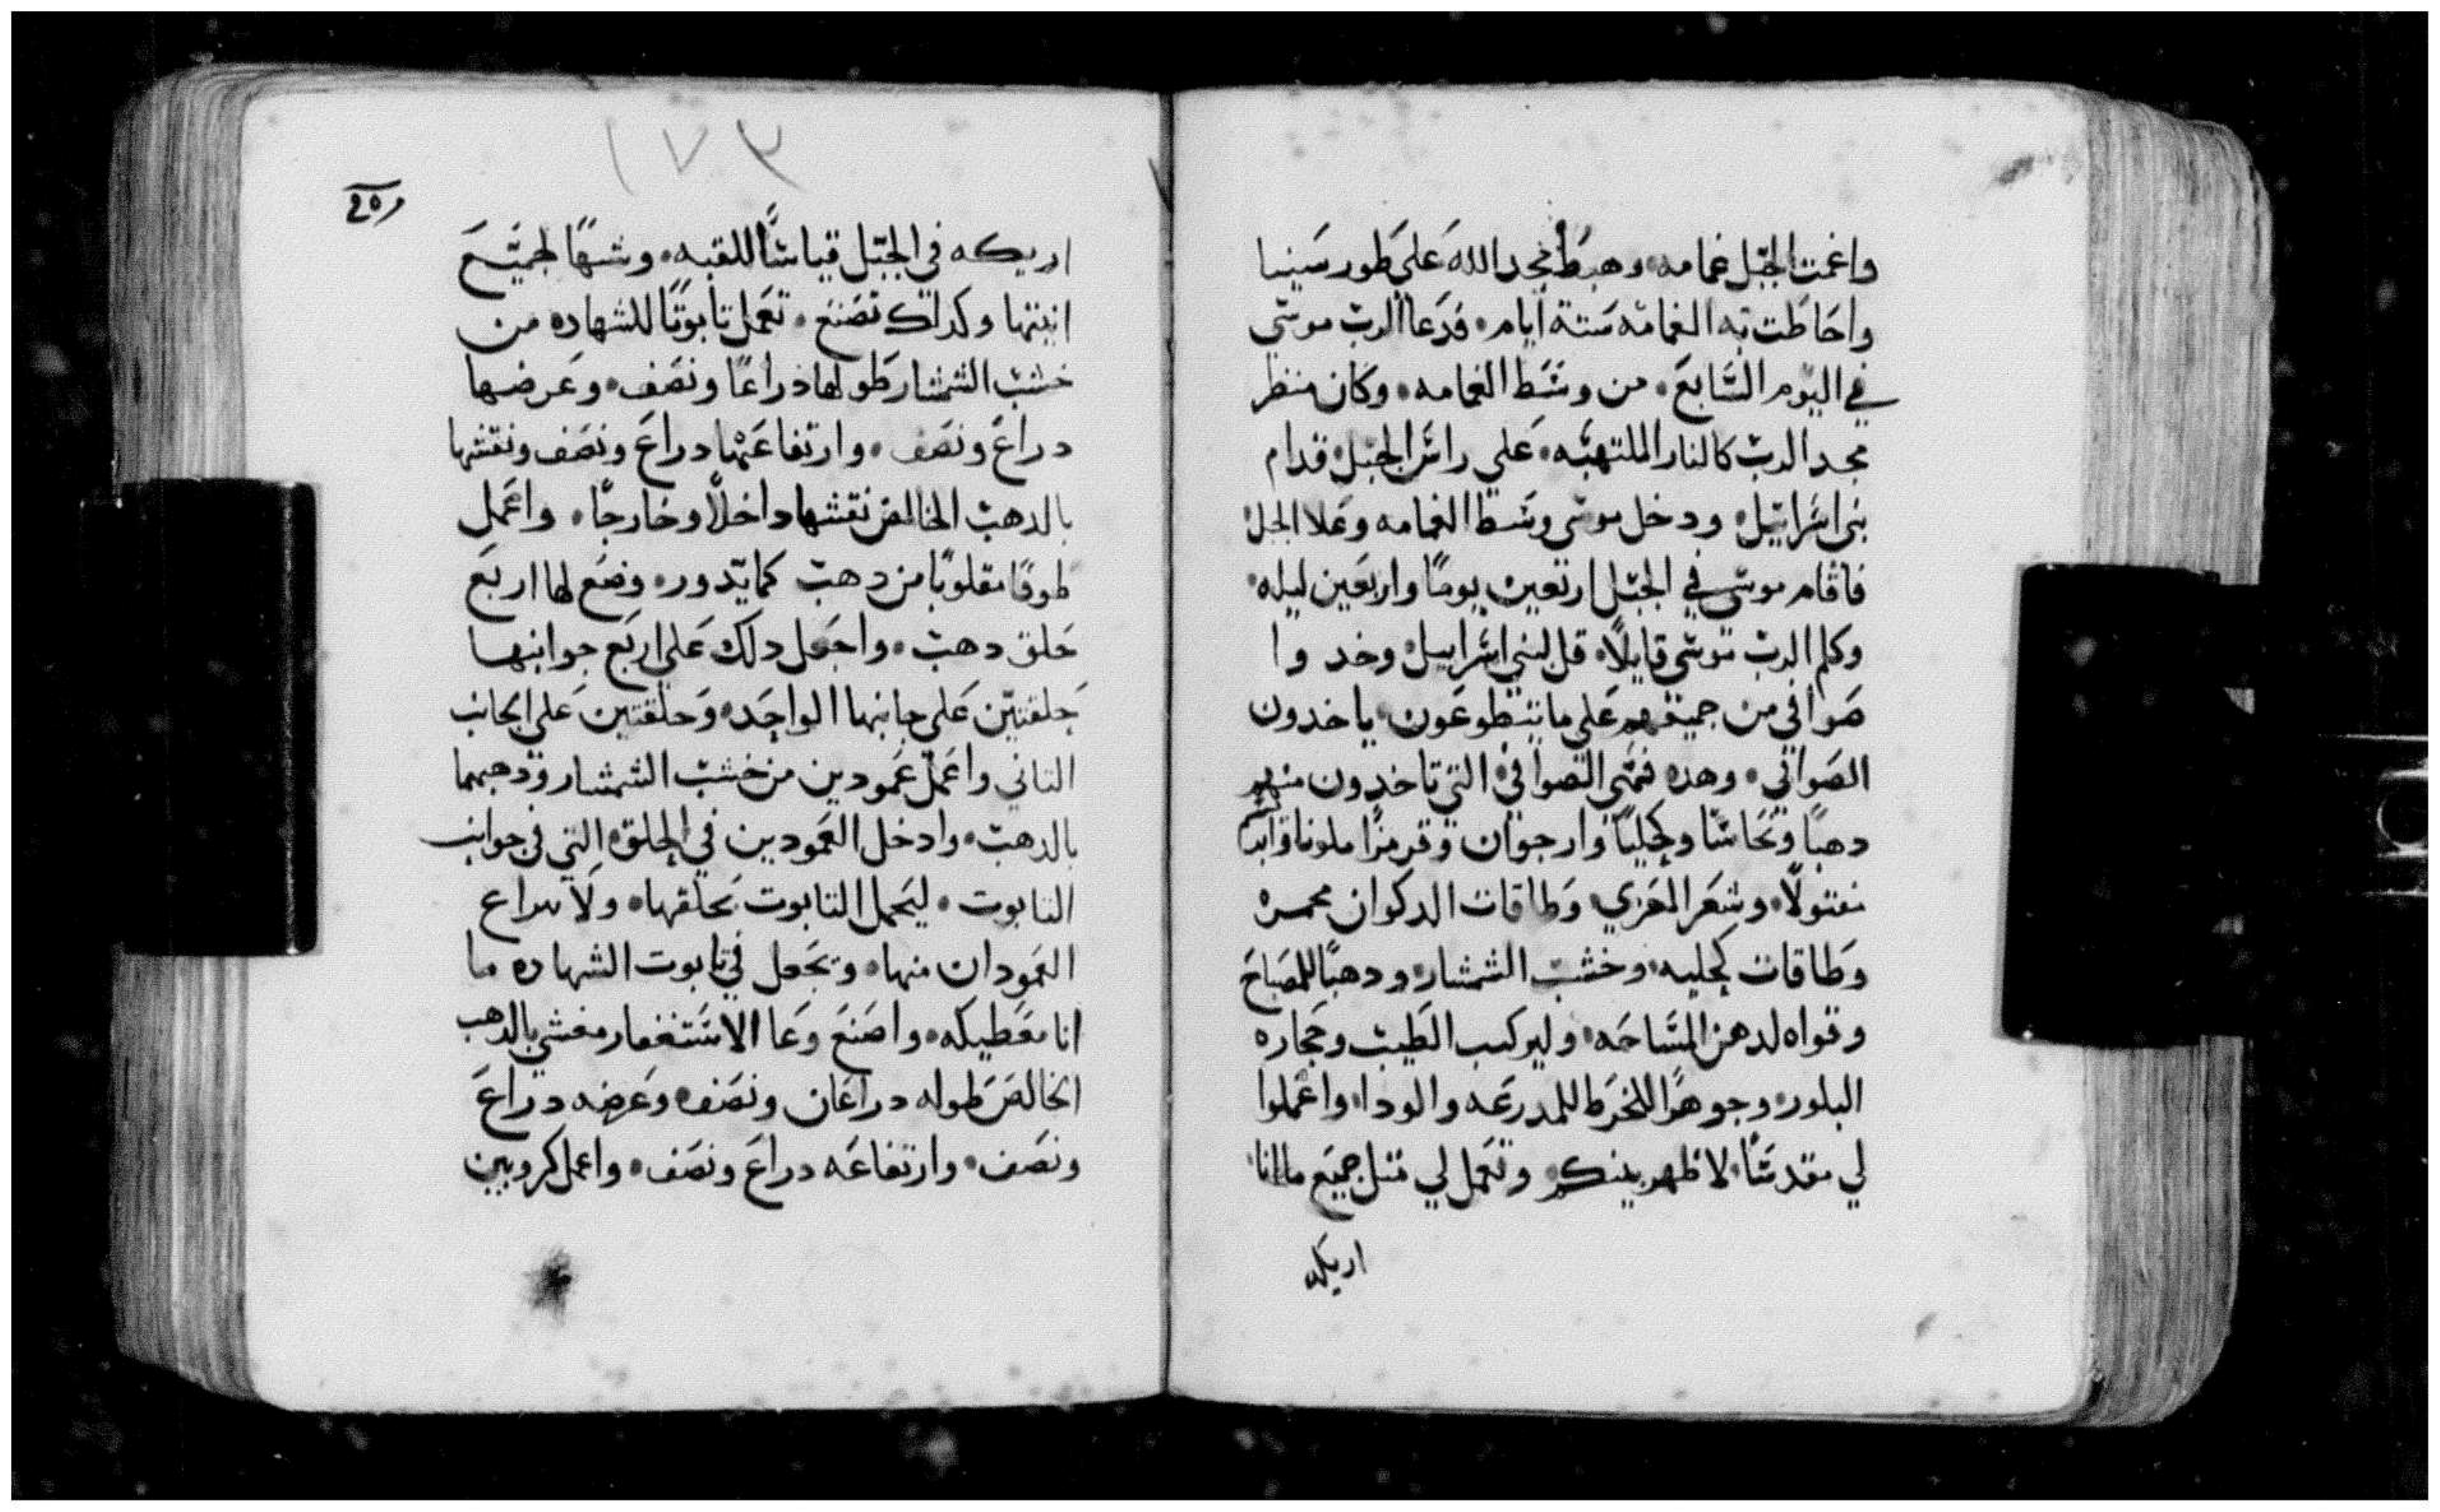 واغمت الجبل غمامه وهبط مجد الله على طور سينيا
واحاطت به الغمامه ستة ايام فدعا الرب موسى
في اليوم السابع من وسط الغمامه وكان منظر
مجد الرب كالنار الملتهبه على راس الجبل قدام
بني اسراييل ودخل موسى وسط الغمامه وعلا الجبل
فاقام موسى في الجبل اربعين يوما واربعين ليله
وكلم الرب موسى قايلا قل لبني اسراييل وخدوا
صوافي من جميعهم على ما يتطوعون ياخدون
الصوافي وهده فهي الصوافي التي تاخدون منهم
دهبا ونحاسا وكحليا وارجوان وقرمزا ملونا
مفتولا وشعر المعزي وطاقات الدكوان محمره
وطاقات كحليه وخشب الشمشار ودهبا للمصباح
وقواه لدهن المساحه وليركب الطيب وحجاره
البلور وجوهرا للخرط للمدرعه والودا واعملوا
لي مقدسا لاظهر بينكم وتعمل لي مثل جميع ما انا
اريكه
١٧٣
اريكه في الجبل قياسا للقبه وشبها لجميع
انيتها وكدلك تصنع تعمل تابوتا للشهاده من
خشب الشمشار طولها دراعا ونصف وعرضها
دراع ونصف وارتفاعها دراع ونصف ونقشها
بالدهب الخالص نقشها داخلا وخارجا واعمل
طوقا مقلوبا من دهب كما يدور وضع لها اربع
حلق دهب واجعل دلك على اربع جوانبها
حلقتين على جانبها الواحد وحلقتين على الجانب
التاني واعمل عمودين من خشب الشمشار ودهبهما
بالدهب وادخل العمودين في الحلق التي في جوانب
التابوت ليحمل التابوت بحلقها ولا
العمودان منها وتجعل في تابوت الشهاده ما
انا معطيكه واصنع وعا الاستغفار مغشى بالدهب
الخالص طوله دراعان ونصف وعرضه دراع
ونصف وارتفاعه دراع ونصف واعمل كروبين